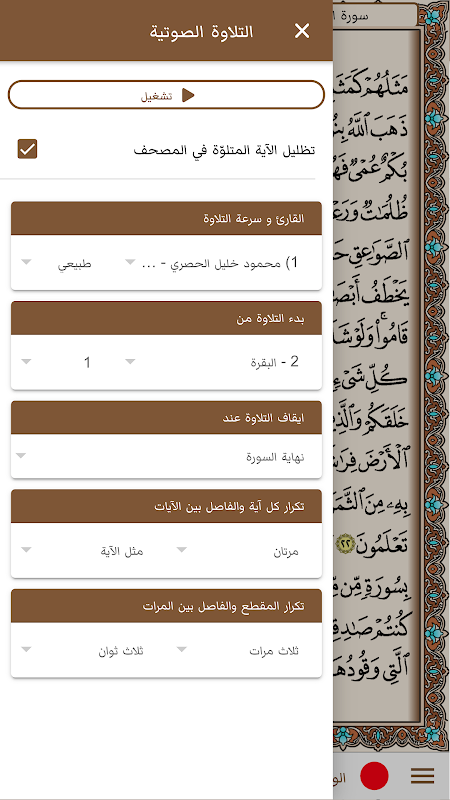 التلاوة الصوتية
تشغيل
تظليل الآية المتلوّة في المصحف
القارئ و سرعة التلاوة
1) محمود خليل الحصري - ... طبيعي
بدء التلاوة من
2 - البقرة 1
ايقاف التلاوة عند
نهاية السورة
تكرار كل آية والفاصل بين الآيات
مرتان مثل الآية
تكرار المقطع والفاصل بين المرات
ثلاث مرات ثلاث ثوان
سورة
مَثَلُهُمْ
ذَهَبَ ٱللَّهُ
بُكْمٌ عُمْىٌ
ظُلُمَٰتٌ
ٱلصَّوَٰعِقِ
يَخْطَفُ
قَامُوا۟ ۚ وَلَوْ
كُلِّ شَىْءٍ
خَلَقَكُمْ
ٱلْأَرْضَ
بِهِۦ مِنَ
تَعْلَمُونَ ٢٢
بِسُورَةٍ
كُنتُمْ
ٱلَّتِى